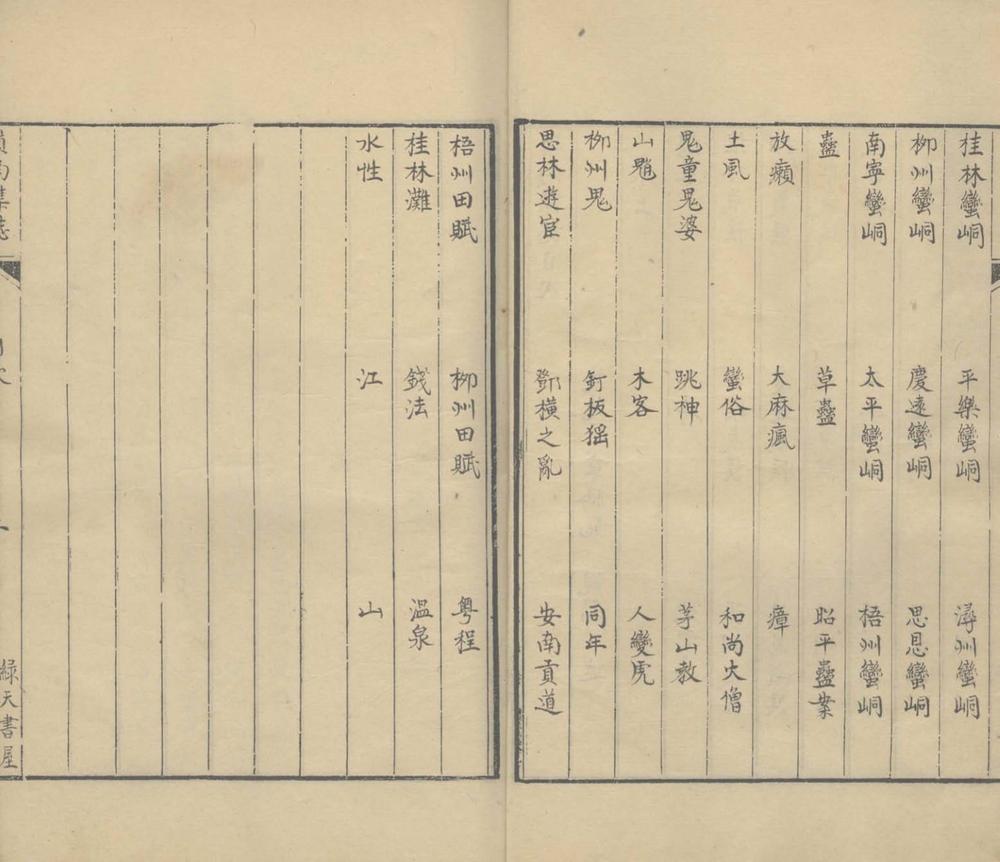 桂林蠻峒　平樂蠻峒　潯州蠻峒
柳州蠻峒　慶遠蠻峒　思恩蠻峒
南寧蠻峒　太平蠻峒　梧州蠻峒
蠱　草蠱　昭平蠱案
放癩　大麻瘋　瘴
土風　蠻俗　和尚火僧
鬼童鬼婆　跳神　茅山教
山魈　木客　人變虎
柳州鬼　釘板猺　同年
思林遊宦　鄧橫之亂　安南貢道
梧州田賦　柳州田賦　粵程
桂林灘　錢法　溫泉
水性　江　山
嶺南集 綠天書屋